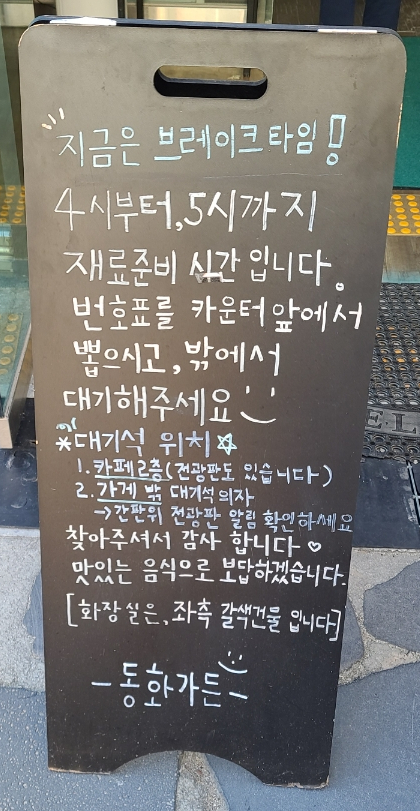 지금은 브레이크타임!
4시부터,5시까지
재료준비 시간 입니다.
번호표를 카운터앞에서
뽑으시고, 밖에서
대기해주세요
*대기석 위치☆
1. 카페2층(전광판도 있습니다)
2. 가게 밖 대기석의자
→간판위 전광판 알림 확인하세요
찾아주셔서 감사 합니다♡
맛있는 음식으로 보답하겠습니다.
[화장실은, 좌측 갈색건물 입니다]
-동화가든-